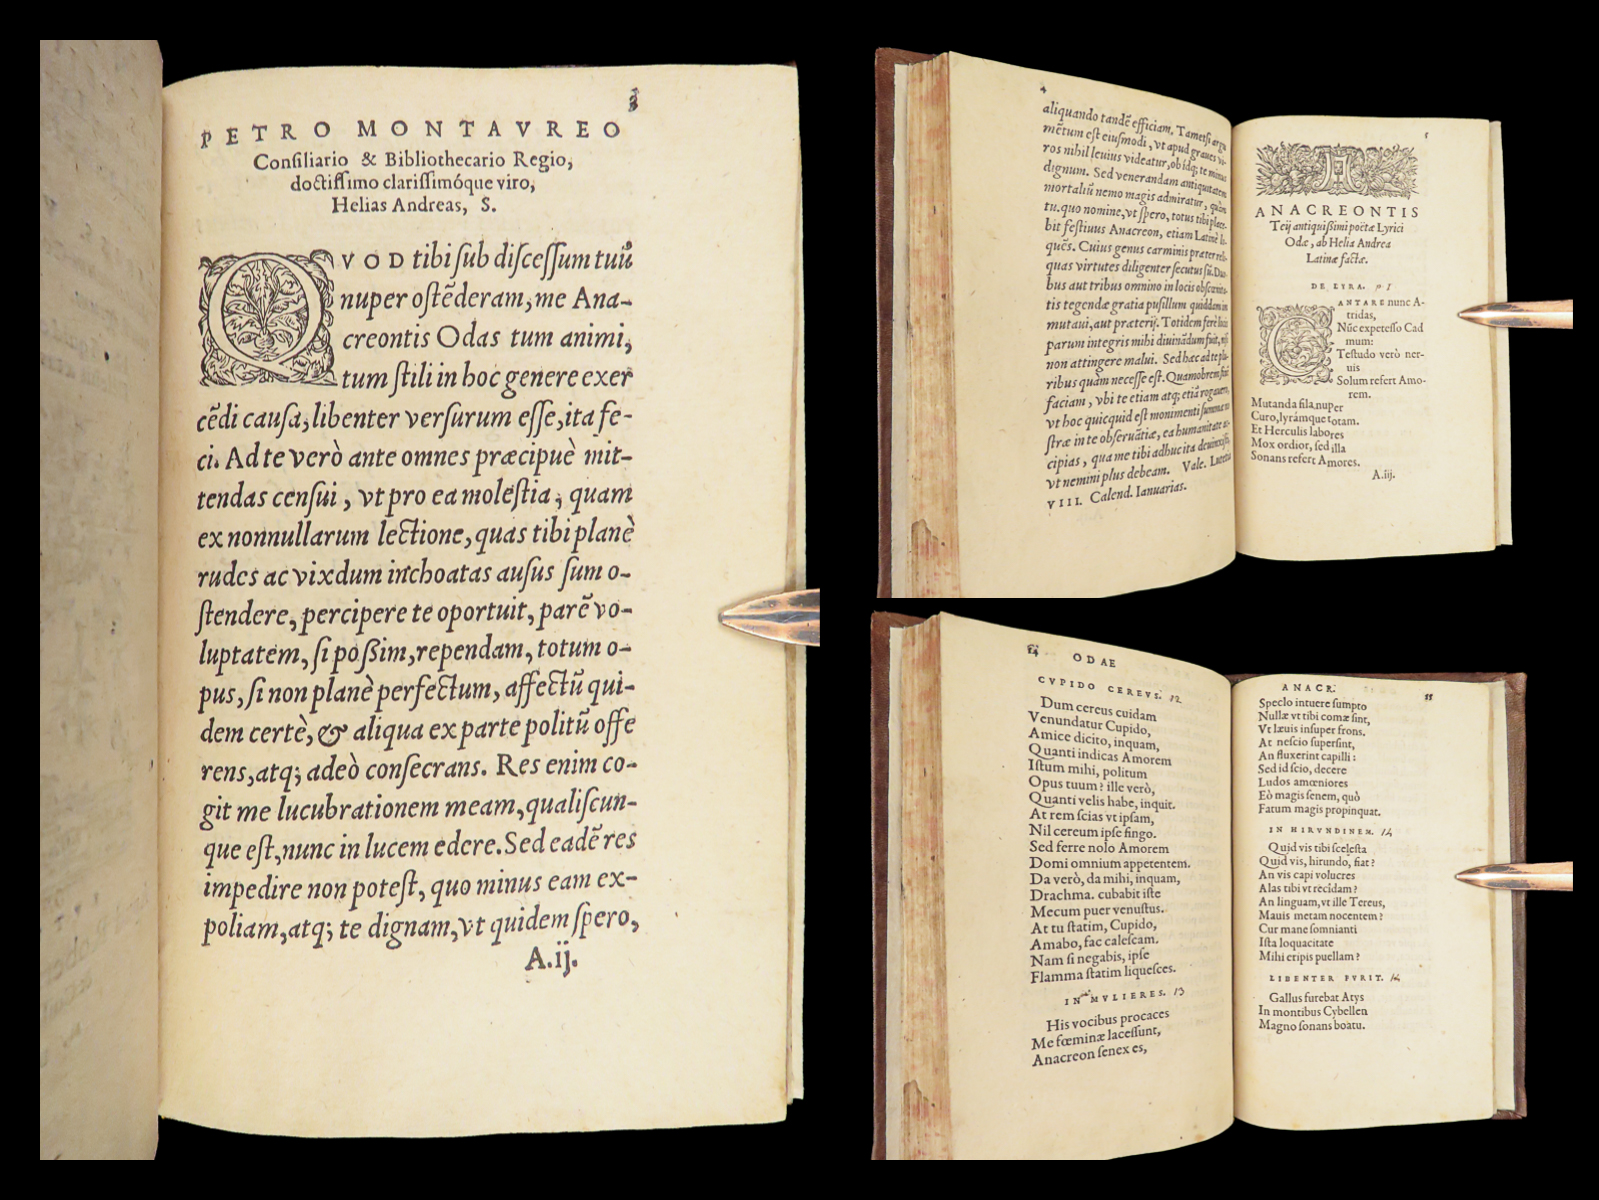 3
PETRO MONTAVREO
Conſiliario & Bibliothecario Regio,
doctiſſimo clariſſimóque viro,
Helias Andreas, S.
QVOD tibi ſub diſceſſum tuũ
nuper oſtẽderam, me Ana-
creontis Odas tum animi,
tum ſtili in hoc genere exer
cẽdi cauſa, libenter verſurum eſſe, ita fe-
ci. Ad te verò ante omnes præcipuè mit-
tendas cenſui, vt pro ea moleſtia, quam
ex nonnullarum lectione, quas tibi planè
rudes ac vixdum inchoatas auſus ſum o-
ſtendere, percipere te oportuit, parẽ vo-
luptatem, ſi poſſim, rependam, totum o-
pus, ſi non planè perfectum, affectũ qui-
dem certè, & aliqua ex parte politũ offe
rens, atq; adeò conſecrans. Res enim co-
git me lucubrationem meam, qualiſcun-
que eſt, nunc in lucem edere. Sed eadẽ res
impedire non poteſt, quo minus eam ex-
poliam, atq; te dignam, vt quidem ſpero,
A.ij.
4
aliquando tandẽ efficiam. Tametſi argu
mẽtum eſt eiuſmodi, vt apud graues vi-
ros nihil leuius videatur, ob idq; te minus
dignum. Sed venerandam antiquitatem
mortaliũ nemo magis admiratur, quàm
tu. quo nomine, vt ſpero, totus tibi place-
bit feſtiuus Anacreon, etiam Latinè lo-
quẽs. Cuius genus carminis præter reli-
quas virtutes diligenter ſecutus ſũ. Duo-
bus aut tribus omnino in locis obſcœnita-
tis tegendæ gratia puſillum quiddam im
mutaui, aut præterij. Totidem ferè locis
parum integris mihi diuinãdum fuit, niſi
non attingere malui. Sed hæc ad te plu-
ribus quàm neceſſe eſt. Quamobrem finẽ
faciam, vbi te etiam atq; etiã rogauero,
vt hoc quicquid eſt monimenti ſummæ no
ſtræ in te obſeruãtiæ, ea humanitate ac-
cipias, qua me tibi adhuc ita deuinxiſti,
vt nemini plus debeam. Vale. Lutetiæ
VIII. Calend. Ianuarias.
5
ANACREONTIS
Teij antiquiſſimi poëtæ Lyrici
Odæ, ab Helia Andrea
Latinæ factæ.
DE LYRA.
CANTARE nunc A-
tridas,
Nũc expeteſſo Cad
mum:
Teſtudo verò ner-
uis
Solum refert Amo-
rem.
Mutanda fila nuper
Curo, lyrámque totam.
Et Herculis labores
Mox ordior, ſed illa
Sonans refert Amores.
A.iij.
14
ODAE
CVPIDO CEREVS. 12
Dum cereus cuidam
Venundatur Cupido,
Amice dicito, inquam,
Quanti indicas Amorem
Iſtum mihi, politum
Opus tuum? ille verò,
Quanti velis habe, inquit.
At rem ſcias vt ipſam,
Nil cereum ipſe fingo.
Sed ferre nolo Amorem
Domi omnium appetentem.
Da verò, da mihi, inquam,
Drachma. cubabit iſte
Mecum puer venuſtus.
At tu ſtatim, Cupido,
Amabo, fac caleſcam.
Nam ſi negabis, ipſe
Flamma ſtatim liqueſces.
IN MVLIERES. 13
His vocibus procaces
Me fœminæ laceſſunt,
Anacreon ſenex es,
ANACR.
15
Speclo intuere ſumpto
Nullæ vt tibi comæ ſint,
Vt læuis inſuper frons.
At neſcio ſuperſint,
An fluxerint capilli:
Sed id ſcio, decere
Ludos amœniores
Eò magis ſenem, quò
Fatum magis propinquat.
IN HIRVNDINEM. 14
Quid vis tibi ſceleſta
Quid vis, hirundo, fiat?
An vis capi volucres
Alas tibi vt recidam?
An linguam, vt ille Tereus,
Mauis metam nocentem?
Cur mane ſomnianti
Iſta loquacitate
Mihi eripis puellam?
LIBENTER FVRIT.
Gallus furebat Atys
In montibus Cybellen
Magno ſonans boatu.